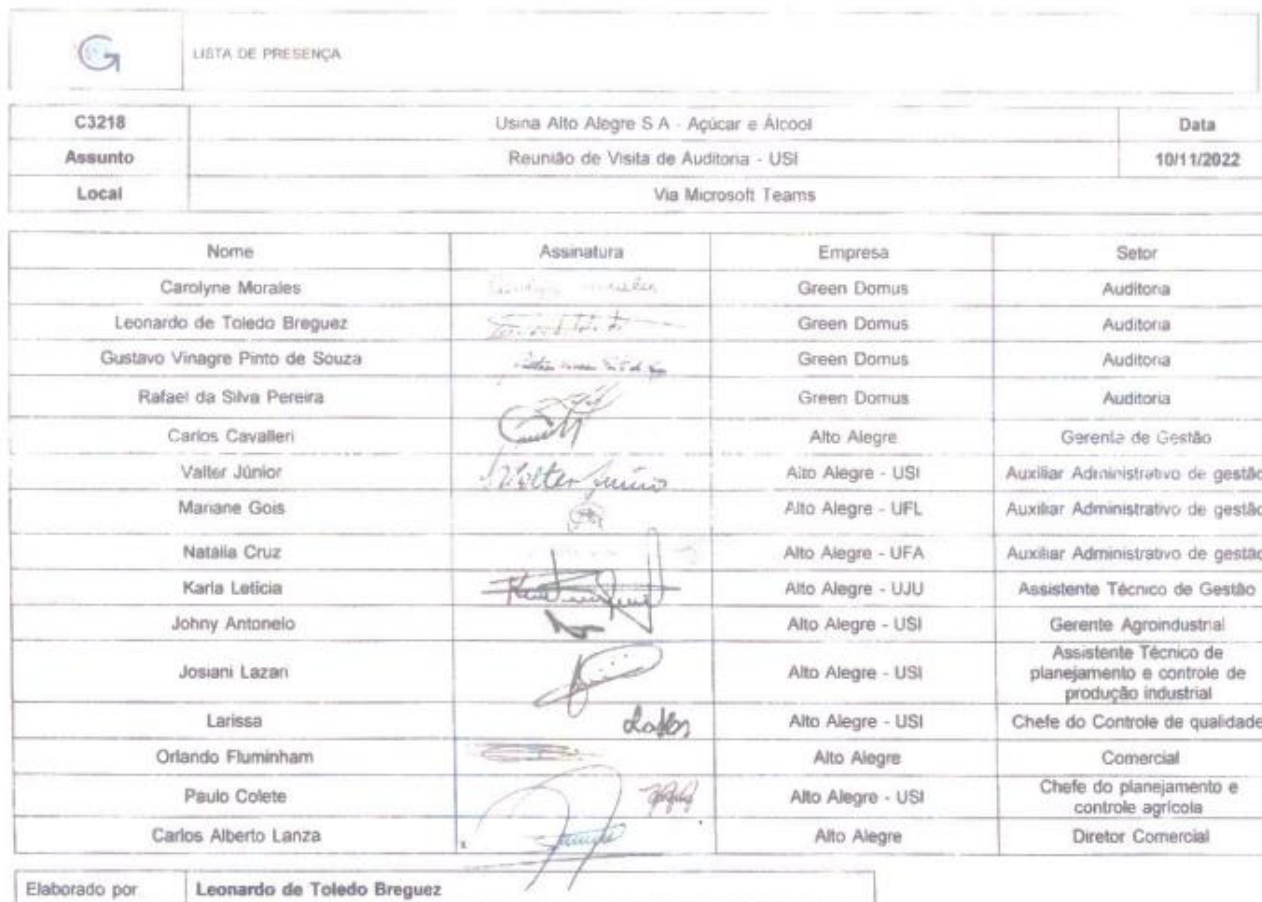 LISTA DE PRESENÇA
C3218 Usina Alto Alegre S A - Açúcar e Álcool Data
Assunto Reunião de Visita de Auditoria - USI 10/11/2022
Local Via Microsoft Teams
Nome Assinatura Empresa Setor
Carolyne Morales Green Domus Auditoria
Leonardo de Toledo Breguez Green Domus Auditoria
Gustavo Vinagre Pinto de Souza Green Domus Auditoria
Rafael da Silva Pereira Green Domus Auditoria
Carlos Cavalleri Alto Alegre Gerente de Gestão
Valter Júnior Valter Júnio Alto Alegre - USI Auxiliar Administrativo de gestão
Mariane Gois Alto Alegre - UFL Auxiliar Administrativo de gestão
Natália Cruz Alto Alegre - UFA Auxiliar Administrativo de gestão
Karla Letícia Alto Alegre - UJU Assistente Técnico de Gestão
Johny Antonelo Alto Alegre - USI Gerente Agroindustrial
Josiani Lazari Alto Alegre - USI Assistente Técnico de
planejamento e controle de
produção industrial
Larissa Alto Alegre - USI Chefe do Controle de qualidade
Orlando Fluminham Alto Alegre Comercial
Paulo Colete Alto Alegre - USI Chefe do planejamento e
controle agrícola
Carlos Alberto Lanza Alto Alegre Diretor Comercial
Elaborado por Leonardo de Toledo Breguez